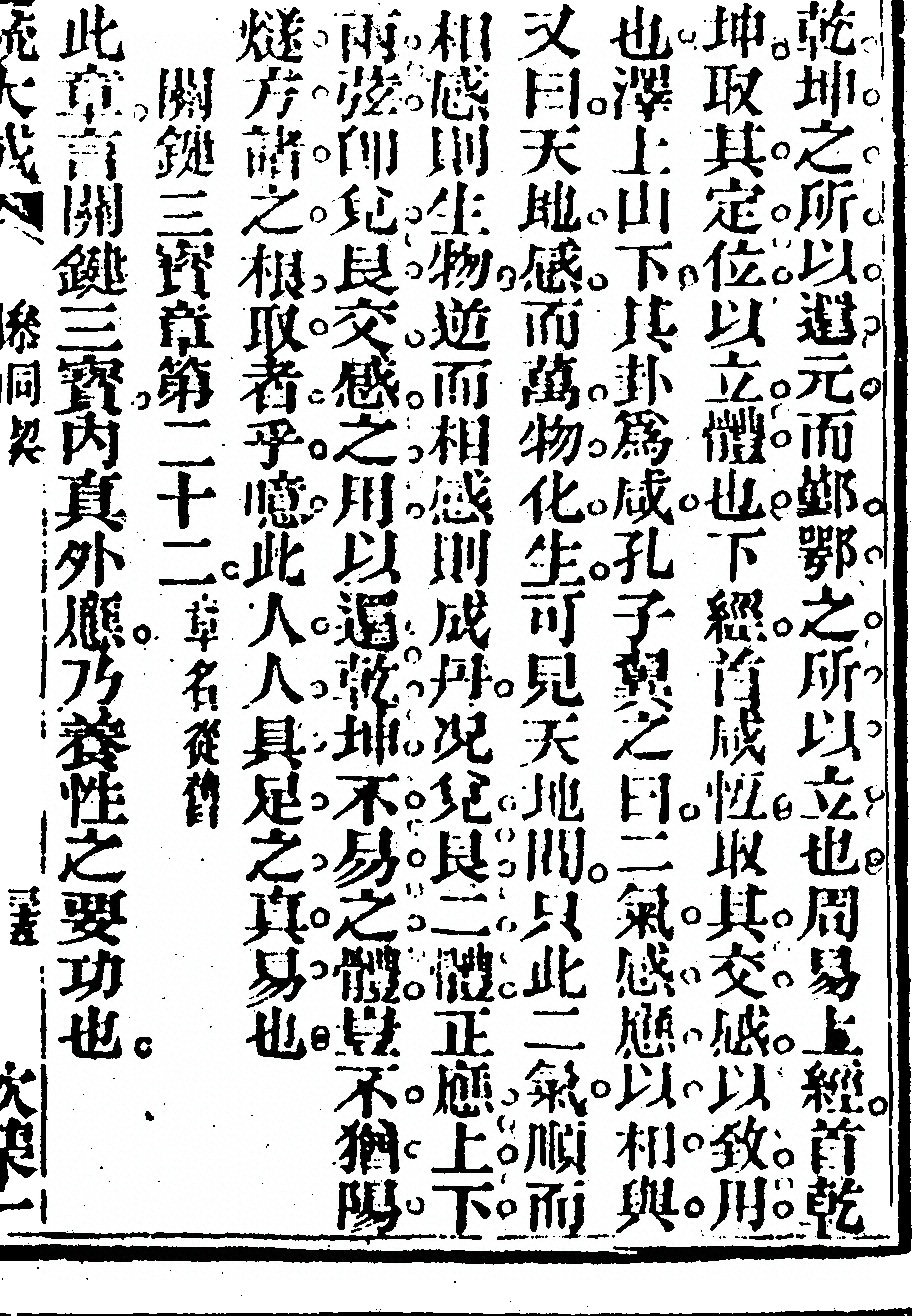 乾坤之所以還元而鄞鄂之所以立也周易上經首乾
坤取其定位以立體也下經首咸恆取其交感以致用
也澤上山下其卦爲咸孔子翼之曰二氣感應以相與
又曰天地感而萬物化生可見天地間只此二氣順而
相感則生物逆而相感則成丹况兌艮二體正應上下
兩弦卽兌艮交感之用以還乾坤不易之體豈不猶陽
燧方諸之根取者乎噫此人人具足之真易也
關鍵三寶章第二十二
章名從舊
此章言關鍵三寶內真外應乃養性之要功也
參同契